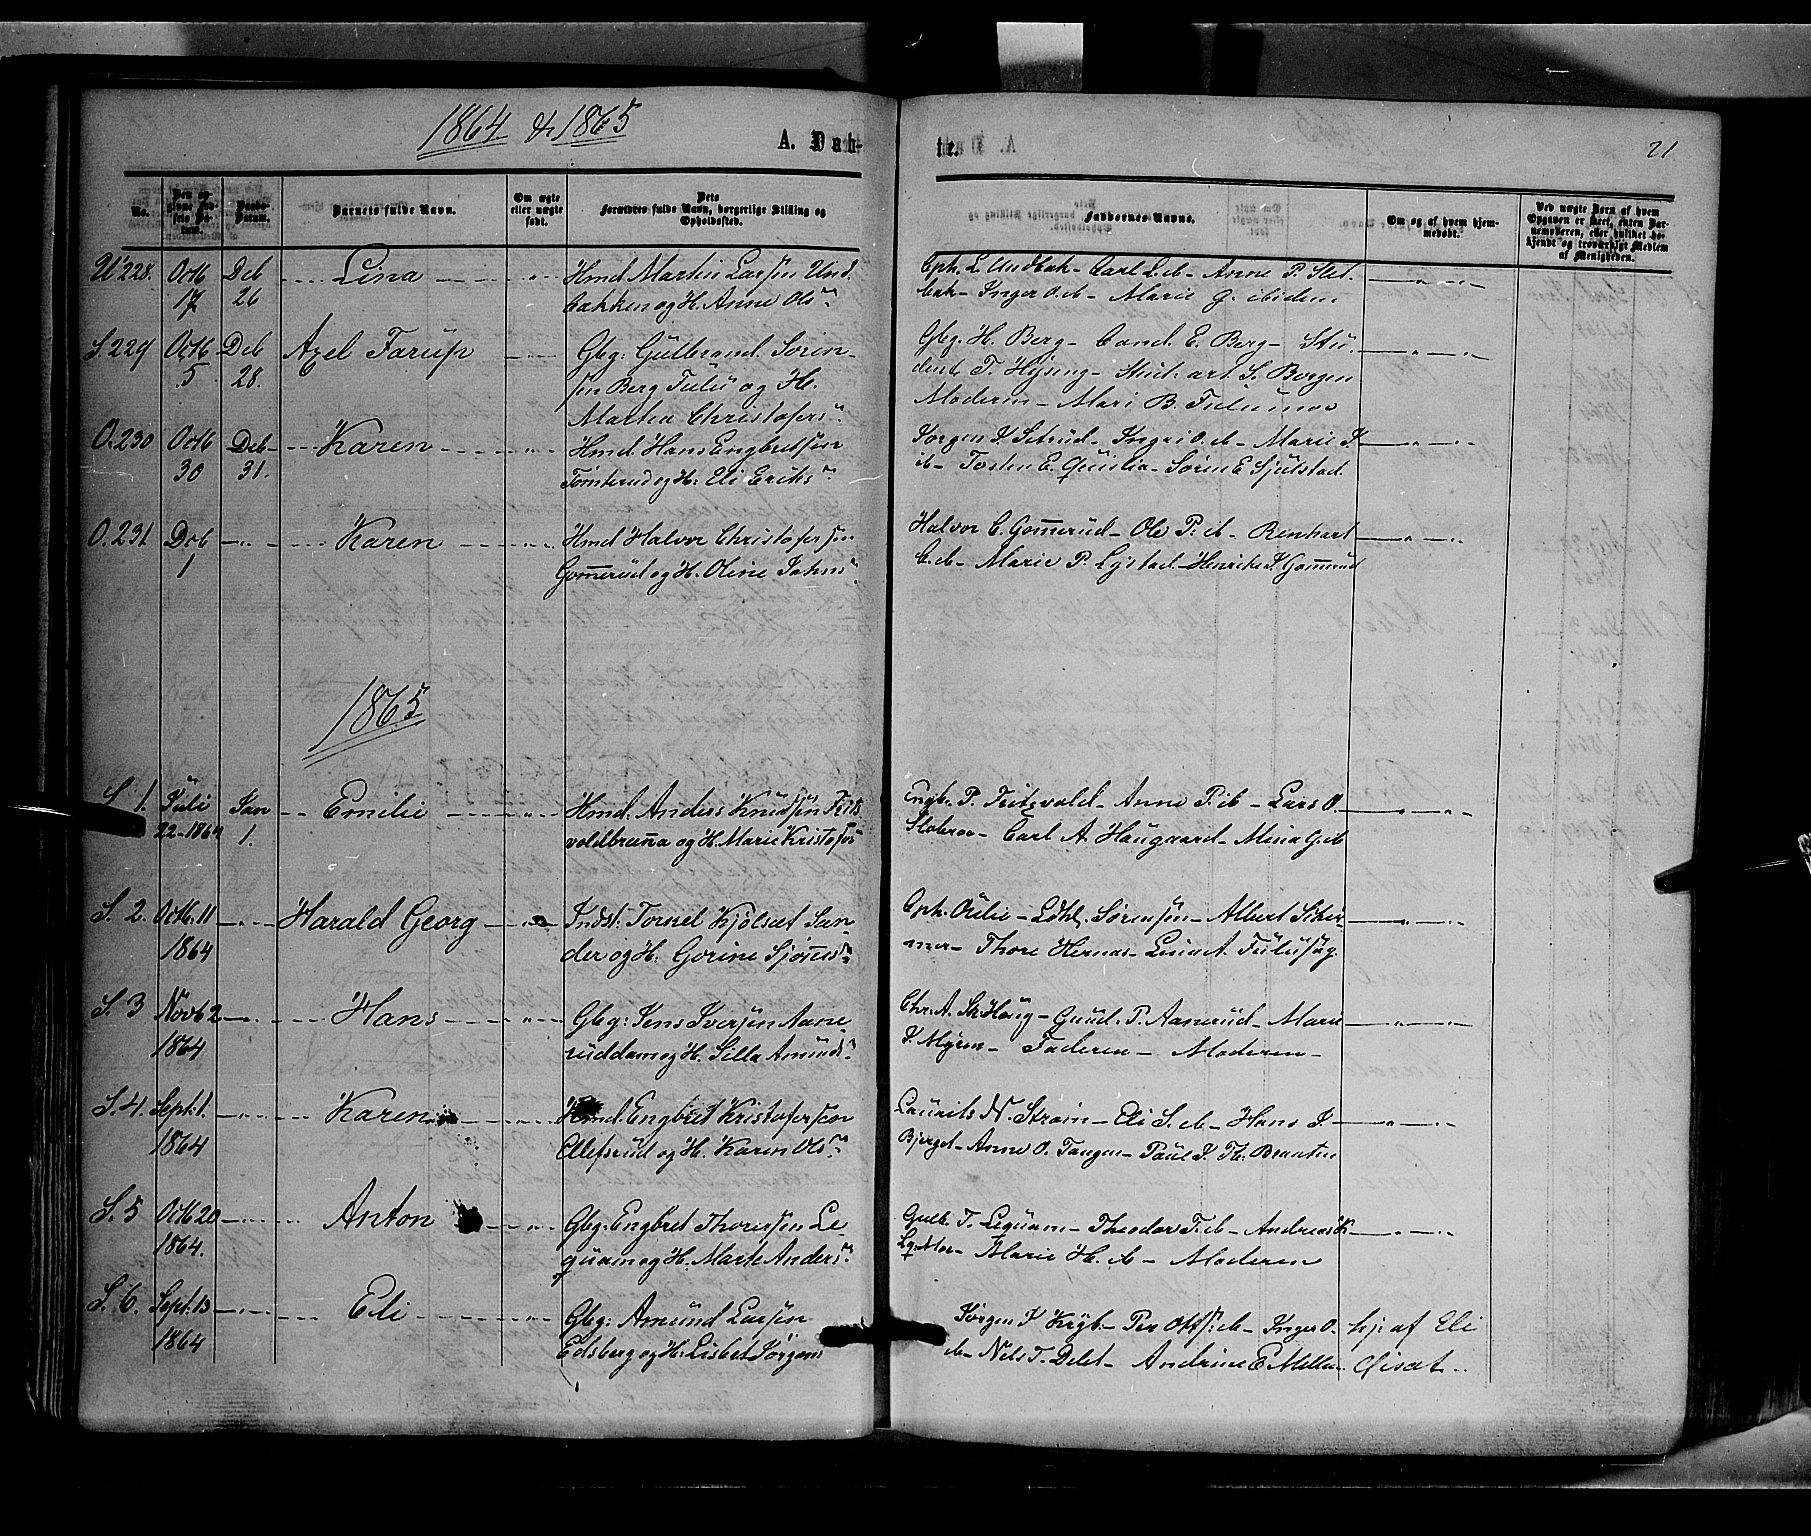 1864 & 1865
A. Døb-
te.
21
No.
Den op-
givne Fød-
sels Da-
tum.
Daabs-
Datum.
Barnets fulde Navn.
Om ægte
eller uægte
født.
Dets
Forældres fulde Navn, borgerlige Stilling og
Opholdssted.
Faddernes Navne.
Om og af hvem hjem-
medøbt.
Ved uægte Børn af hvem
Opgaven er skeet, enten Bar-
nemoderen, eller hvilket be-
kjendt og troværdigt Medlem
af Menigheden.
U 228. Octb 17 Deb 26 Lina " Hmd. Martin Larsen Und
bakken og H. Anne Ols
Cph. L. Undbak - Carl L. ib - Anne P. Slet
bak - Inger O. ib - Marie G. ibidem
S. 229 Octb 5 Deb 28. Axel Farup " Gbg: Gulbrand Soren-
sen Berg Fulu og H.
Marthea Christofers
Gbg. H. Berg - Cand. E. Berg - Stu-
dent T. Hysing - Stud. art. S. Borgen
Moderen - Mari B. Fulumoe
O. 230 Octb 30 Deb 31. Karen " Hmd. Hans Engbretsen
Tømterud og H. Eli Eriks
Jørgen J. Setrud - Ingri O. ib - Marie J.
ib - Tosten E. - Søren E. Sjulstad
O. 231 Deb 1 " Karen " Hmd Halvor Christofersen
Gommerud og H. Oline Johns
Halvor C. Gommerud - Ole P. ib - Renhart
C. ib - Marie P. Lystad - Henrikes J. Gommerud
1865
S 1. Juli 22-1864 Jan 1. Emilie " Hmd. Anders Knudsen Frits
voldbrauna og H. Marie Kristofs
Engb. P. Fritsvold - Anne P. ib - Lars O.
- Carl A. Haugaard - Mina G. ib
S. 2. Octb. 11 1864 " Harald Georg " Indst: Tornel Kjølset San-
der og H. Gorine
Cph. - Søhl. Sørensen - Albert Skir-
mer - Thore Hernæs - A. Fulusag.
S. 3 Novb 2 1864 " Hans " Gbg: Jens Iversen Aane-
ruddam og H. Silla Amunds
Chr. A. Sk. Haug - Gund. P. Aanerud - Marie
J. Myren - Faderen - Moderen -
S. 4. Sept. 1. 1864 " Karen " Hmd. Engbret Kristofersen
Ellefsrud og H. Karen Ols
Laurits N. Strøm - Eli S. ib - Hans J.
Bjerget - Anne O. Tangen - Paul J. Th. Braaten
S. 5 Octb 20 1864. " Anton " Gbg: Engbret Thoresen Le-
quam og H. Marte Anders
Gulb. T. Lequam - Theodor T. ib - Andreas K.
- Marie H. ib - Moderen
S. 6. Sept. 13 1864 " Eli " Gbg: Amund Larsen
Edsberg og H. Lisbet Jørgens
Jørgen J. Kryb - Per ib - Inger O.
ib - Nils T. Delet - Andrine E. Mellem
hj: af Eli
Gisat